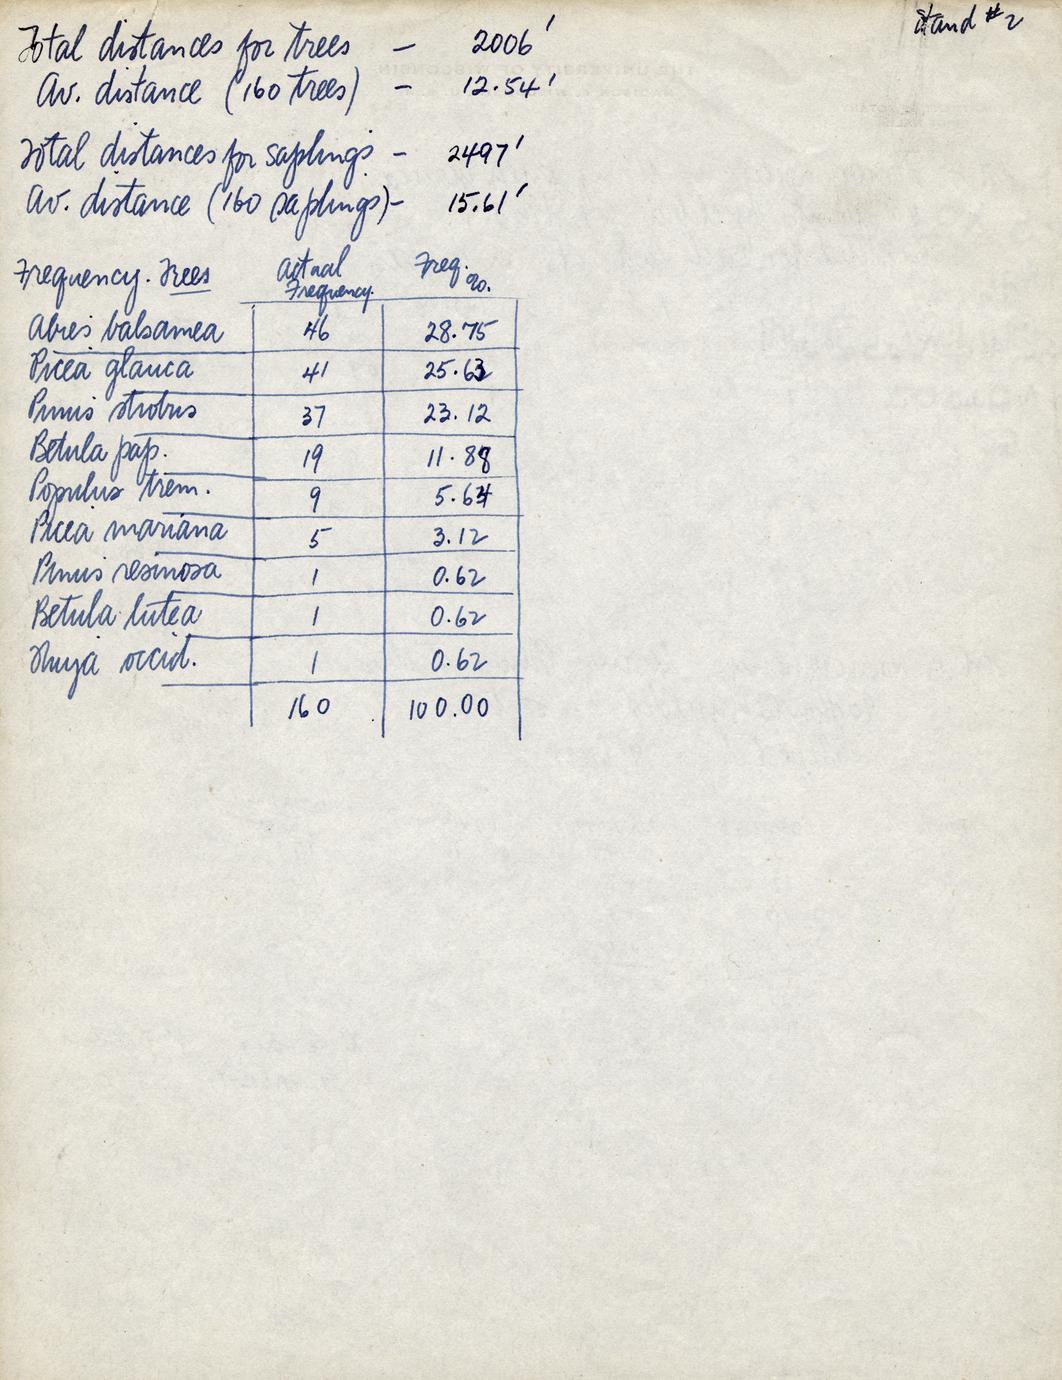 Stand #2
Total distances for trees - 2006'
Av. distance (160 trees) - 12.54'
Total distances for saplings - 2497'
Av. distance (160 saplings) - 15.61'
Frequency. Trees Actual Frequency. Freq. %.
Abies balsamea 46 28.75
Picea glauca 41 25.63
Pinus strobus 37 23.12
Betula pap. 19 11.88
Populus trem. 9 5.64
Picea mariana 5 3.12
Pinus resinosa 1 0.62
Betula lutea 1 0.62
Thuja occid. 1 0.62
160 100.00